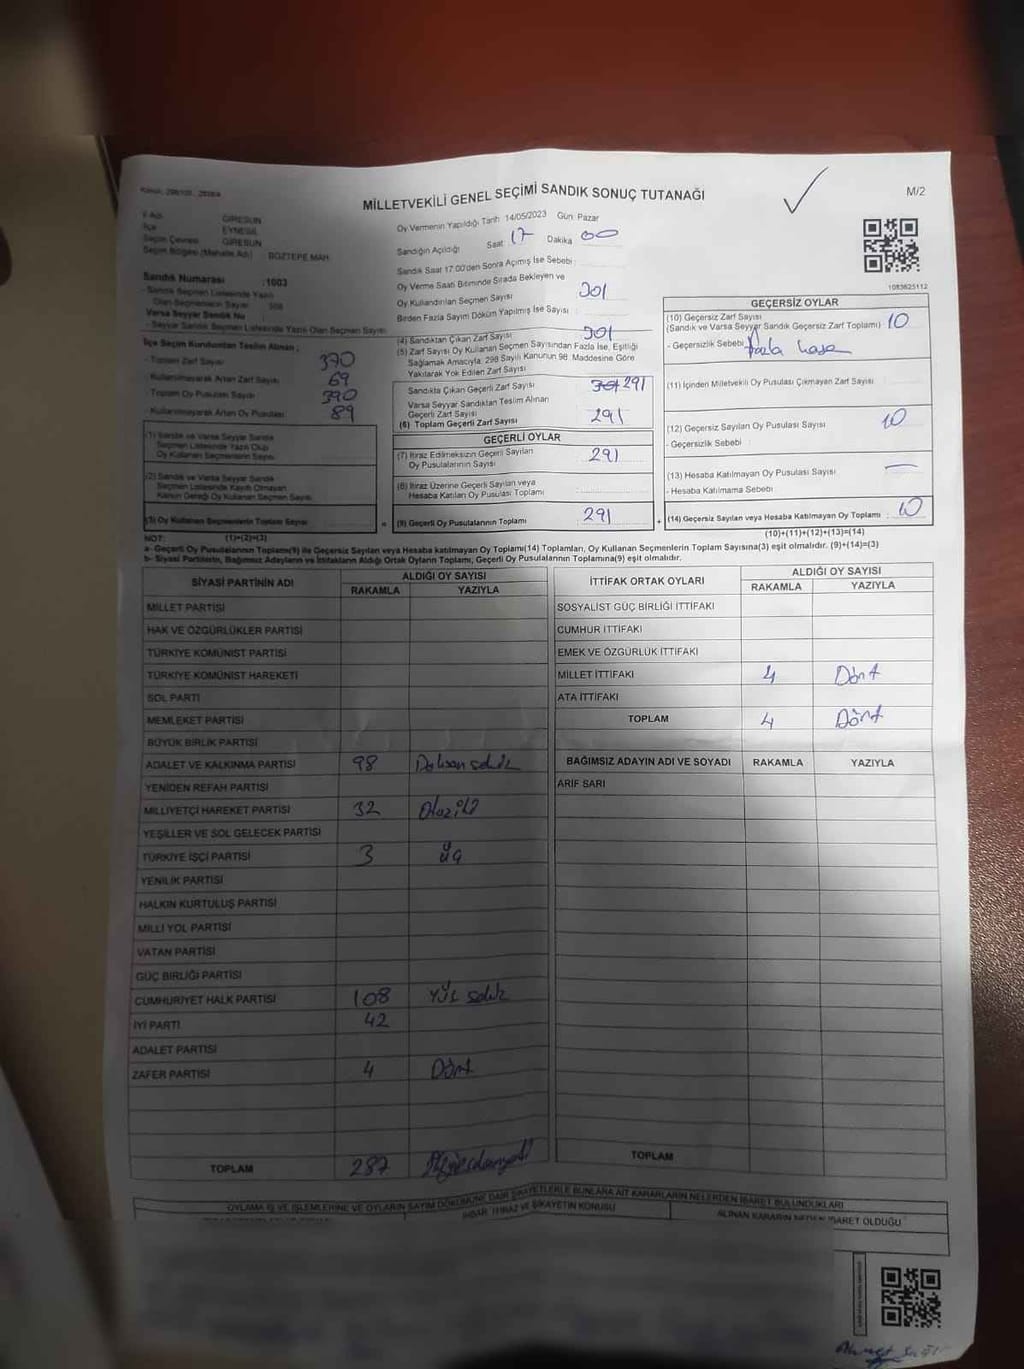 MİLLETVEKİLİ GENEL SEÇİMİ SANDIK SONUÇ TUTANAĞI
M/2
İl Adı GİRESUN
İlçe EYNESİL
Seçim Çevresi GİRESUN
Seçim Bölgesi (Mahalle Adı) BOZTEPE MAH.
Sandık Numarası :1003
- Sandık Seçmen Listesinde Yazılı
Olan Seçmenlerin Sayısı
Varsa Seyyar Sandık No
- Seyyar Sandık Seçmen Listesinde Yazılı Olan Seçmen Sayısı
İlçe Seçim Kurulundan Teslim Alınan ;
- Toplam Zarf Sayısı 370
- Kullanılmayarak Artan Zarf Sayısı 69
- Toplam Oy Pusulası Sayısı 390
- Kullanılmayarak Artan Oy Pusulası 89
(1) Sandık ve Varsa Seyyar Sandık
Seçmen Listesinde Yazılı Olup
Oy Kullanan Seçmenlerin Sayısı
(2) Sandık ve Varsa Seyyar Sandık
Seçmen Listesinde Kayıtlı Olmayan
Kanun Gereği Oy Kullanan Seçmen Sayısı
(3) Oy Kullanan Seçmenlerin Toplam Sayısı
Oy Vermenin Yapıldığı Tarih 14/05/2023 Gün Pazar
Sandığın Açıldığı Saat 17 Dakika 00
Sandık Saat 17.00'den Sonra Açımış İse Sebebi :
Oy Verme Saati Bitiminde Sırada Bekleyen ve
Oy Kullandırılan Seçmen Sayısı 301
Birden Fazla Sayım Döküm Yapılmış İse Sayısı :
(4) Sandıktan Çıkan Zarf Sayısı 301
(5) Zarf Sayısı Oy Kullanan Seçmen Sayısından Fazla İse, Eşitliği
Sağlamak Amacıyla, 298 Sayılı Kanunun 98. Maddesine Göre
Yakılarak Yok Edilen Zarf Sayısı
Sandıkta Çıkan Geçerli Zarf Sayısı 301 291
Varsa Seyyar Sandıktan Teslim Alınan
Geçerli Zarf Sayısı
(6) Toplam Geçerli Zarf Sayısı 291
GEÇERLİ OYLAR
(7) İtiraz Edilmeksizin Geçerli Sayılan
Oy Pusulalarının Sayısı 291
(8) İtiraz Üzerine Geçerli Sayılan veya
Hesaba Katılan Oy Pusulası Toplamı
= (9) Geçerli Oy Pusulalarının Toplamı 291
1083625112
GEÇERSİZ OYLAR
(10) Geçersiz Zarf Sayısı
(Sandık ve Varsa Seyyar Sandık Geçersiz Zarf Toplamı) 10
- Geçersizlik Sebebi fazla
(11) İçinden Milletvekili Oy Pusulası Çıkmayan Zarf Sayısı
(12) Geçersiz Sayılan Oy Pusulası Sayısı 10
- Geçersizlik Sebebi
(13) Hesaba Katılmayan Oy Pusulası Sayısı —
- Hesaba Katılmama Sebebi
+ (14) Geçersiz Sayılan veya Hesaba Katılmayan Oy Toplamı : 10
NOT: (1)+(2)=(3)
(10)+(11)+(12)+(13)=(14)
a- Geçerli Oy Pusulalarının Toplamı(9) ile Geçersiz Sayılan veya Hesaba katılmayan Oy Toplamı(14) Toplamları, Oy Kullanan Seçmenlerin Toplam Sayısına(3) eşit olmalıdır. (9)+(14)=(3)
b- Siyasi Partilerin, Bağımsız Adayların ve İttifakların Aldığı Ortak Oyların Toplamı, Geçerli Oy Pusulalarının Toplamına(9) eşit olmalıdır.
SİYASİ PARTİNİN ADI
ALDIĞI OY SAYISI
RAKAMLA YAZIYLA
MİLLET PARTİSİ
HAK VE ÖZGÜRLÜKLER PARTİSİ
TÜRKİYE KOMÜNİST PARTİSİ
TÜRKİYE KOMÜNİST HAREKETİ
SOL PARTİ
MEMLEKET PARTİSİ
BÜYÜK BİRLİK PARTİSİ
ADALET VE KALKINMA PARTİSİ 98 Doksan sekiz
YENİDEN REFAH PARTİSİ
MİLLİYETÇİ HAREKET PARTİSİ 32 Otuz iki
YEŞİLLER VE SOL GELECEK PARTİSİ
TÜRKİYE İŞÇİ PARTİSİ 3 üç
YENİLİK PARTİSİ
HALKIN KURTULUŞ PARTİSİ
MİLLİ YOL PARTİSİ
VATAN PARTİSİ
GÜÇ BİRLİĞİ PARTİSİ
CUMHURİYET HALK PARTİSİ 108 Yüz sekiz
İYİ PARTİ 42
ADALET PARTİSİ
ZAFER PARTİSİ 4 Dört
TOPLAM 287
İTTİFAK ORTAK OYLARI
ALDIĞI OY SAYISI
RAKAMLA YAZIYLA
SOSYALİST GÜÇ BİRLİĞİ İTTİFAKI
CUMHUR İTTİFAKI
EMEK VE ÖZGÜRLÜK İTTİFAKI
MİLLET İTTİFAKI 4 Dört
ATA İTTİFAKI
TOPLAM 4 Dört
BAĞIMSIZ ADAYIN ADI VE SOYADI RAKAMLA YAZIYLA
ARİF SARI
TOPLAM
OYLAMA İŞ VE İŞLEMLERİNE VE OYLARIN SAYIM DÖKÜMÜNE DAİR ŞİKAYETLERLE BUNLARA AİT KARARLARIN NELERDEN İBARET BULUNDUKLARI
İHBAR, İTİRAZ VE ŞİKAYETİN KONUSU
ALINAN KARARIN NEDEN İBARET OLDUĞU